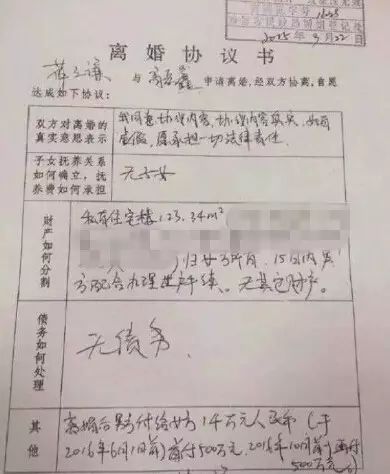 2015 9 22
离婚协议书
与 申请离婚,经双方协商,自愿
达成如下协议:
双方对离婚的
真实意思表示
我同意协议内容,协议内容真实,如有
虚假,愿承担一切法律责任.
子女抚养关系
如何确立,抚
养费如何承担
无子女
财产如何分割
私有住宅楼123.34m²
归女方所有,15日内男
方配合办理过户手续。无其它财产。
债务如何处理
无债务
其他
离婚后男方付给女方1千万元人民币(于
2016年6月1日前首付500万元,2016年10月前再付
500万元)